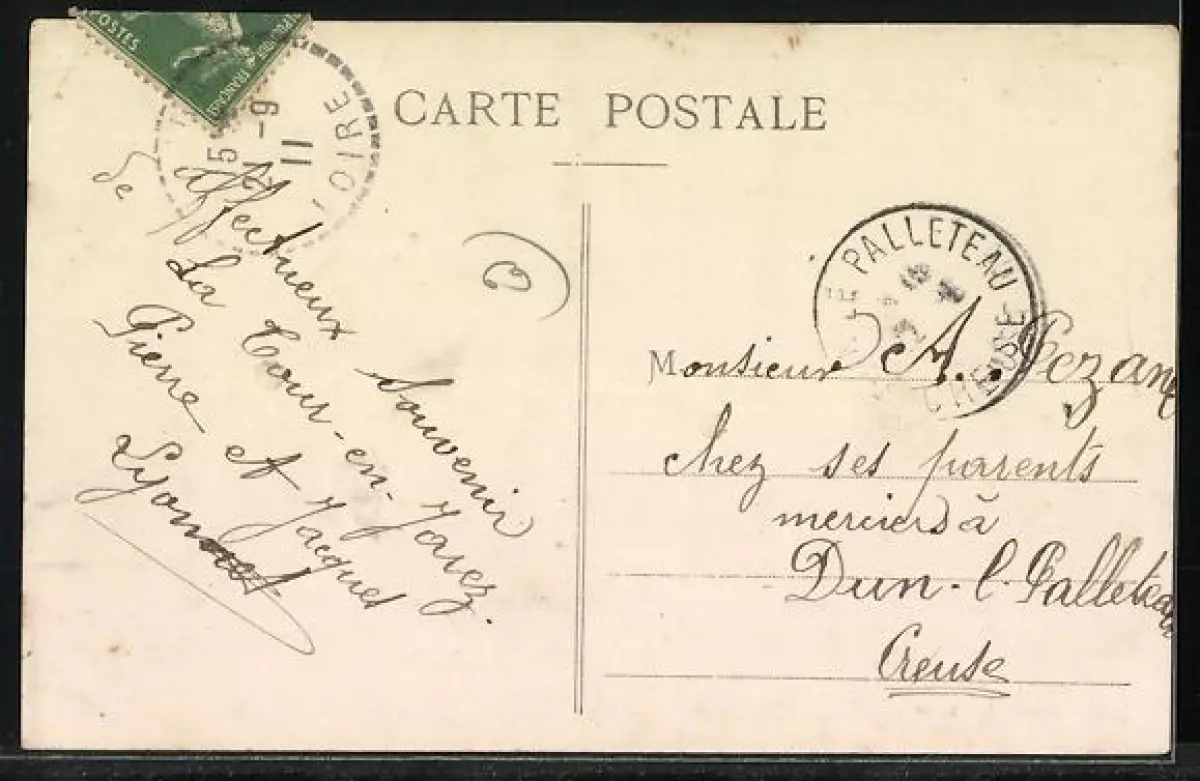 POSTES
FRANÇAISE
CARTE POSTALE
LOIRE
-9
11
Affectueux Souvenir
de La Tour-en-Jarez.
Pierre et Jacques
Lyonnet
LE PALLETEAU
CREUSE
Monsieur A.
chez ses parents
merciers à
Dun-l. Palleteau
Creuse